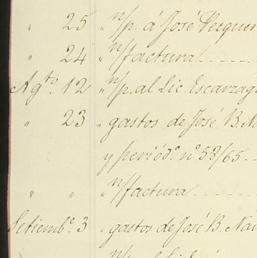 " 25 " n/p. á José Vecquer
" 24 " n/factura
Agto. 12 " n/p. al Lic. Escarzaga
" 23 " gastos de José B. Na
y periód.o nº 58/65
" " " n/factura
Setiemb.e 3 " gastos de José B. Na